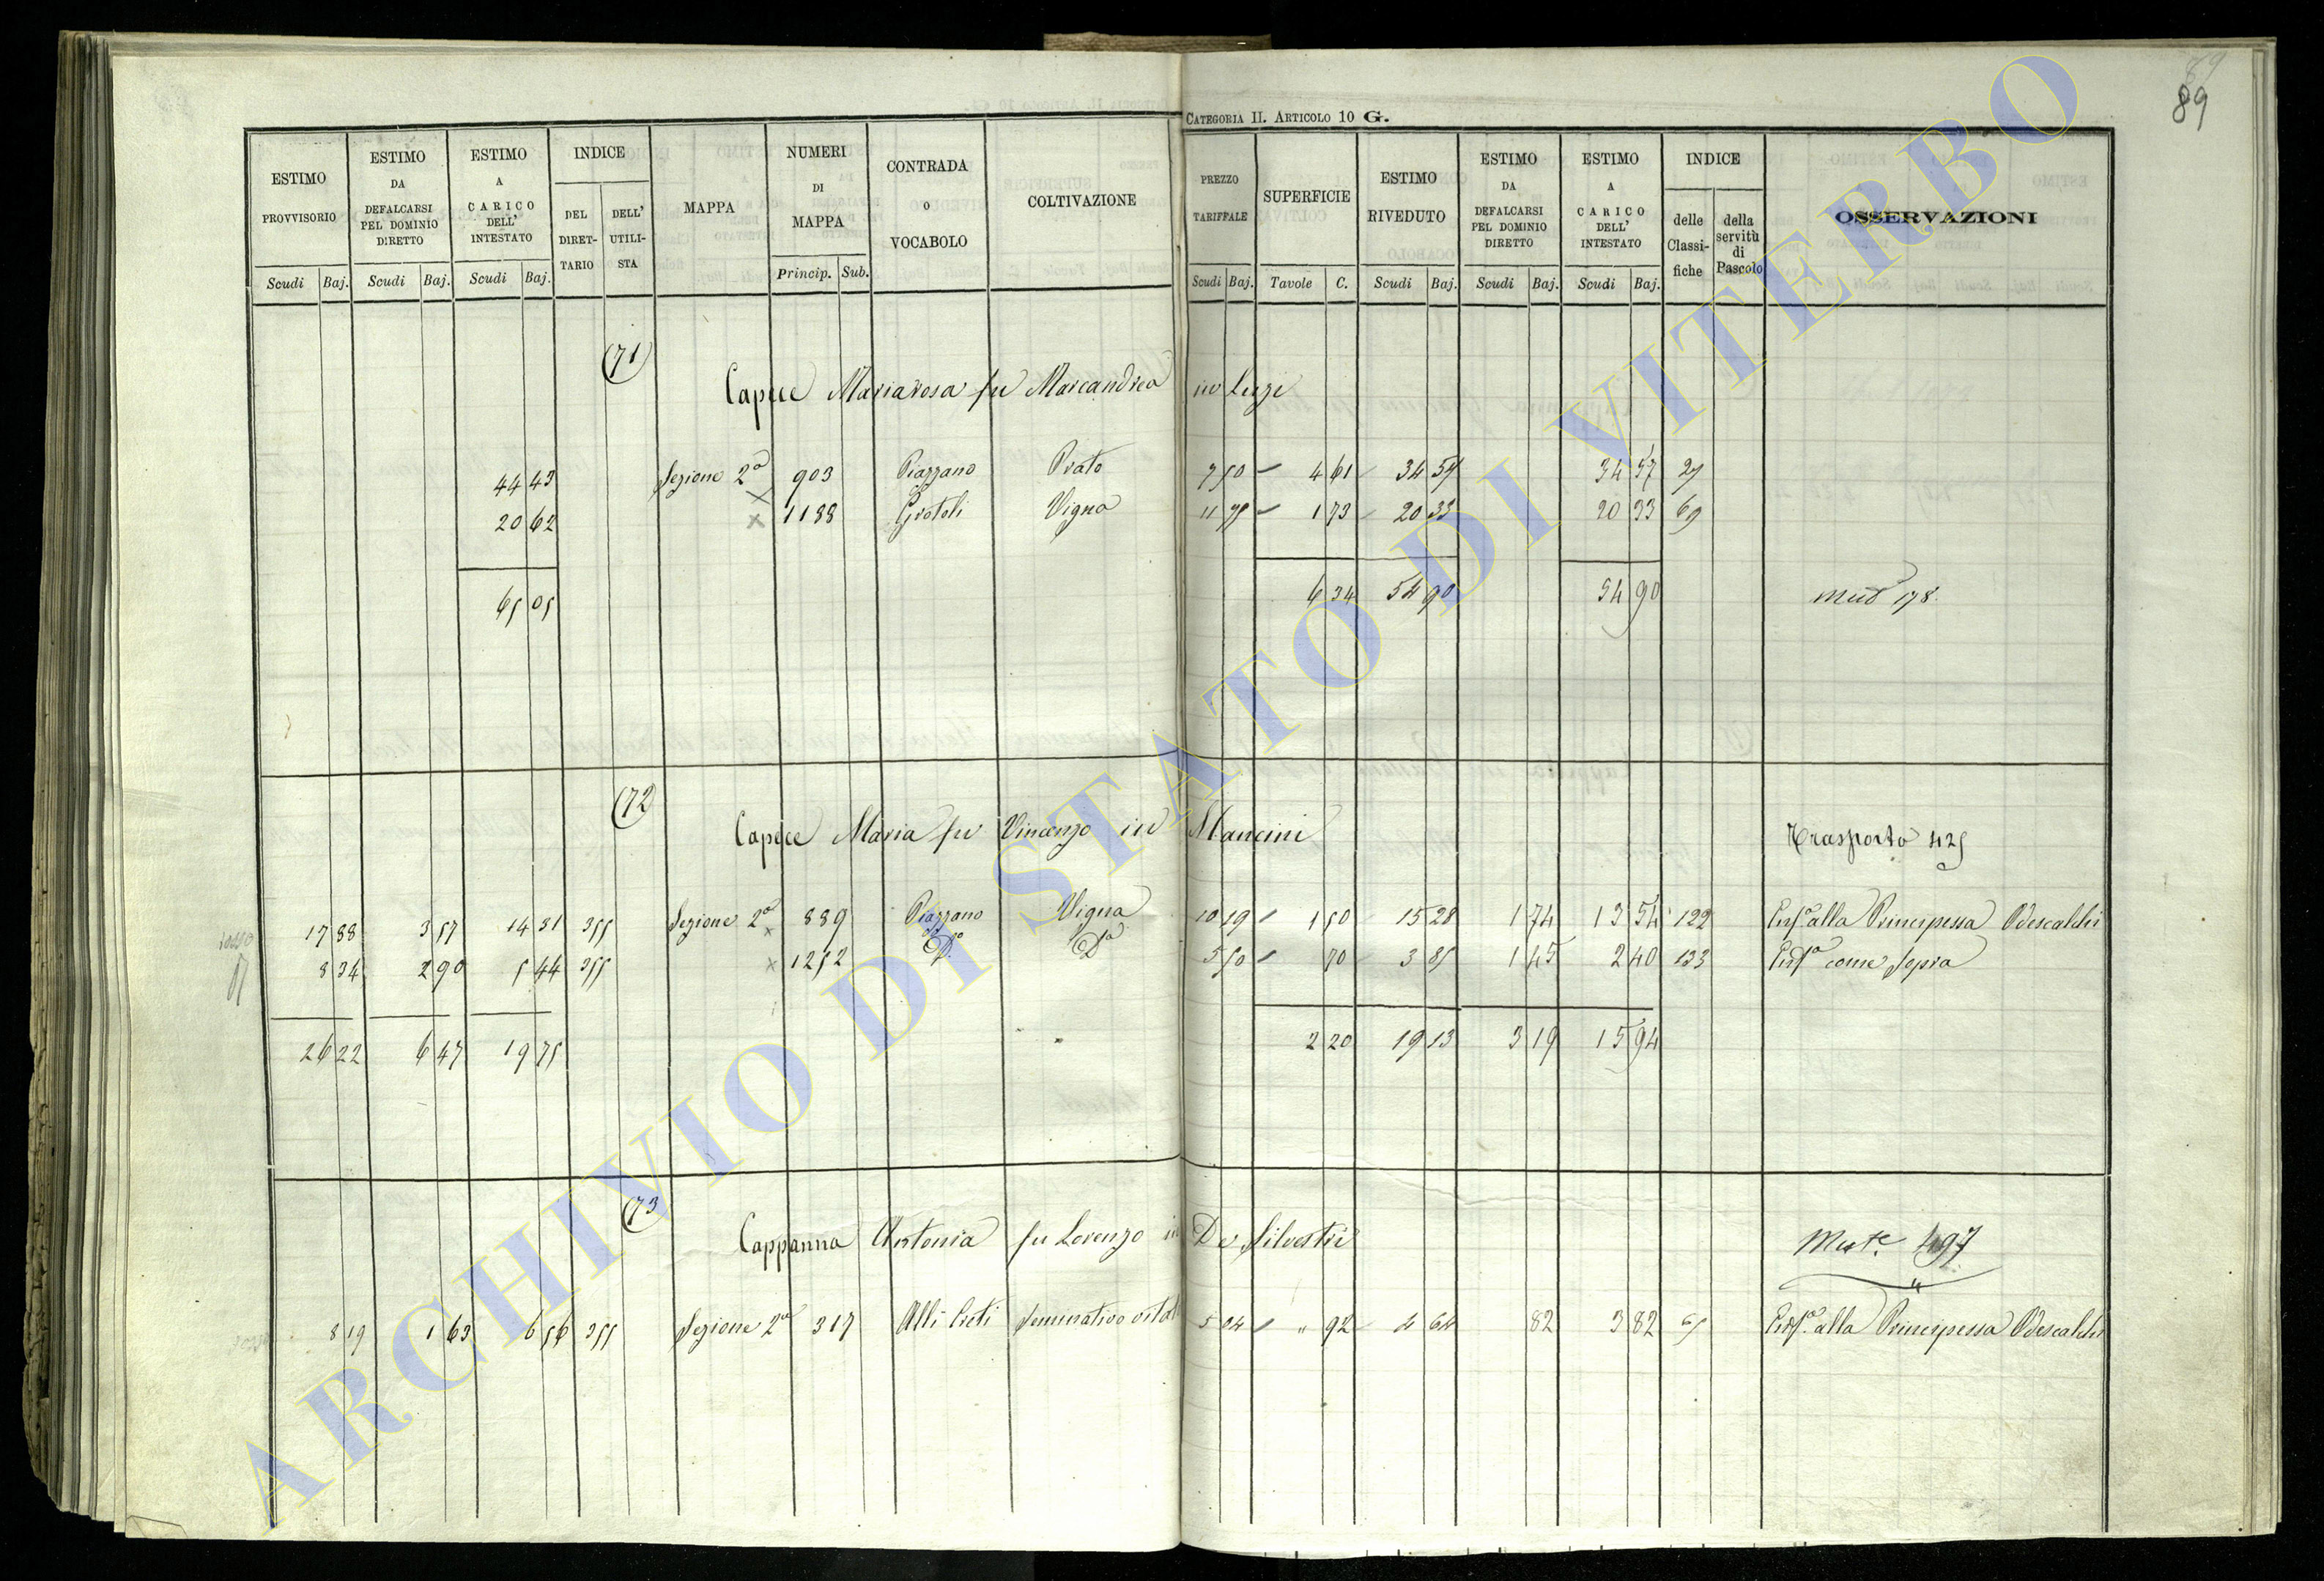 89
89
CATEGORIA II. ARTICOLO 10 G.
ESTIMO PROVVISORIO Scudi Baj.
ESTIMO DA DEFALCARSI PEL DOMINIO DIRETTO Scudi Baj.
ESTIMO A CARICO DELL' INTESTATO Scudi Baj.
INDICE DEL DIRET-TARIO DELL' UTILI-STA
MAPPA
NUMERI DI MAPPA Princip. Sub.
CONTRADA O VOCABOLO
COLTIVAZIONE
PREZZO TARIFFALE Scudi Baj.
SUPERFICIE Tavole C.
ESTIMO RIVEDUTO Scudi Baj.
ESTIMO DA DEFALCARSI PEL DOMINIO DIRETTO Scudi Baj.
ESTIMO A CARICO DELL' INTESTATO Scudi Baj.
INDICE delle Classi-fiche della servitù di Pascolo
OSSERVAZIONI
71
Capece Mariarosa fu Marcandrea in Luzi
44 43 Sezione 2a 903 Piazzano Prato 7 50 4 61 34 57 34 57 27
20 62 x 1188 Grotoli Vigna 11 75 1 73 20 33 20 33 69
65 05 6 34 54 90 54 90 Mut 178
72
Capece Maria fu Vincenzo in Mancini Trasporto 425
17 88 3 57 14 31 355 Sezione 2a x 889 Piazzano Vigna 10 19 1 50 15 28 1 74 13 54 122 Enfa alla Principessa Odescalchi
8 34 2 90 5 44 355 x 1252 Do Da 5 50 70 3 85 1 45 2 40 133 Enfa come sopra
26 22 6 47 19 75 2 20 19 13 3 19 15 94
73
Cappanna Antonia fu Lorenzo in De Silvestri Mute 497
8 19 1 63 6 56 355 Sezione 2a 317 Alli Preti Seminativo vitato 5 04 " 92 4 64 82 3 82 65 Enfa alla Principessa Odescalchi
ARCHIVIO DI STATO DI VITERBO